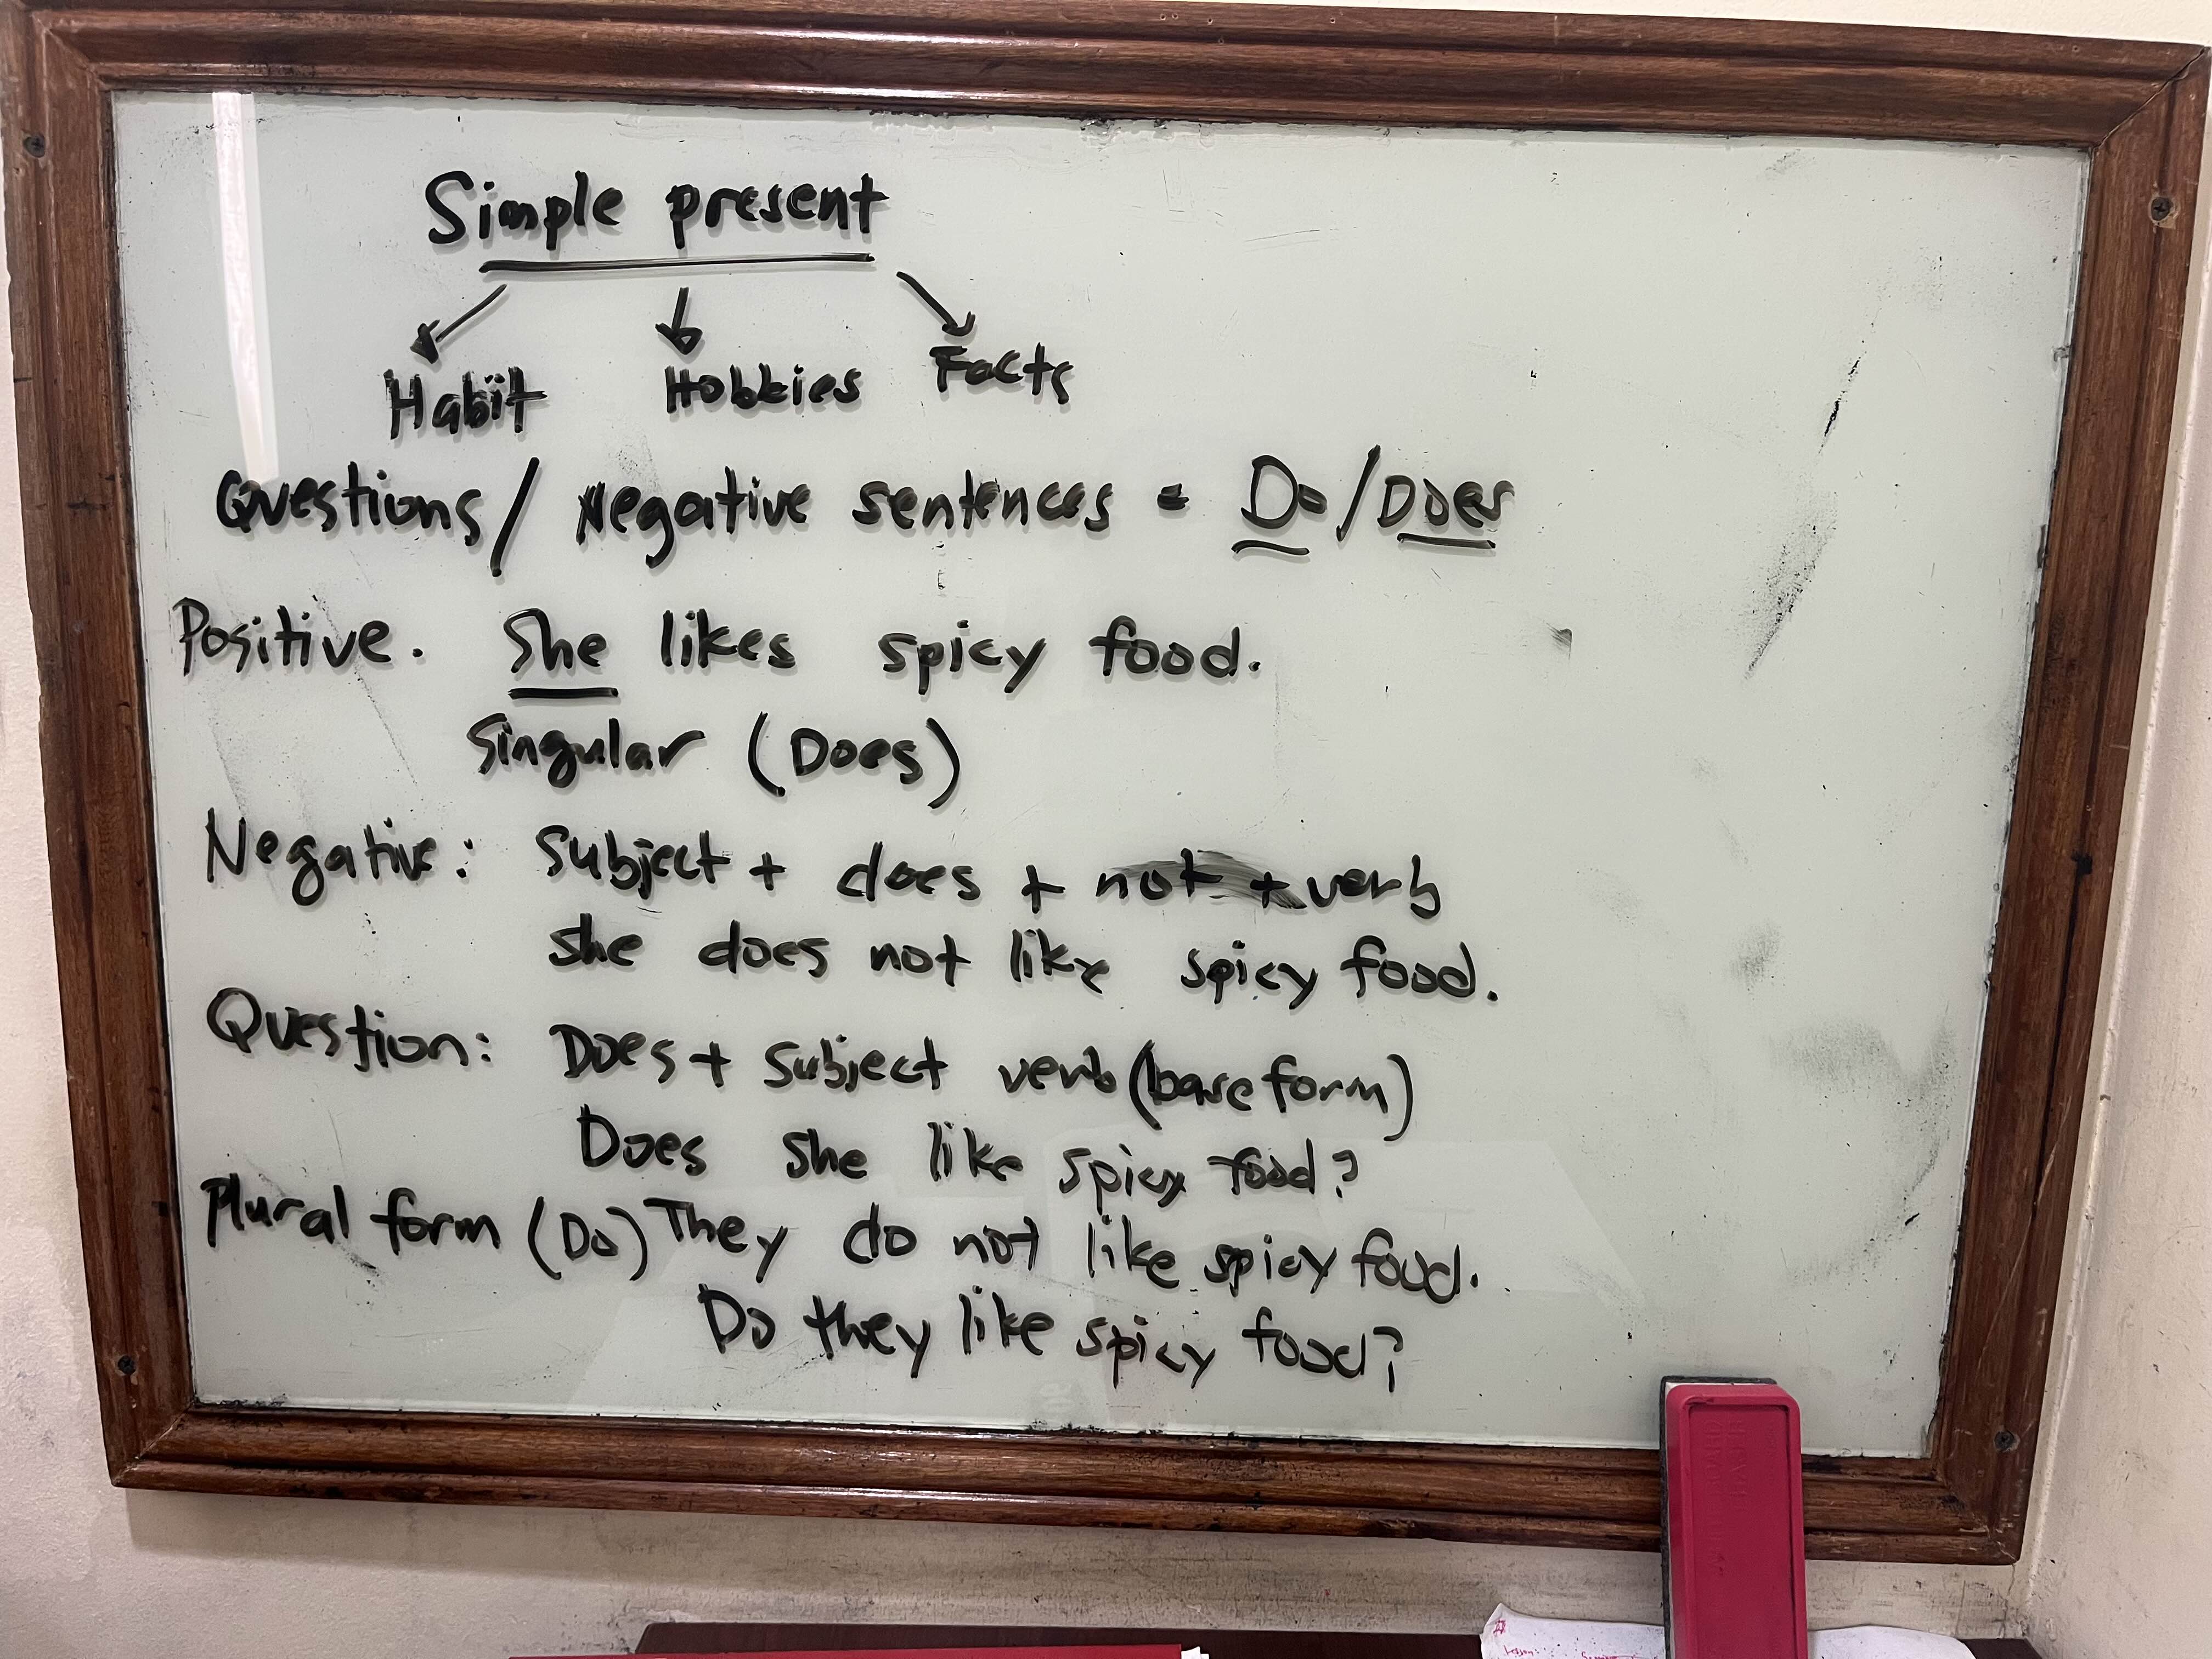 Simple present
Habit Hobbies Facts
Questions/ Negative sentences = Do/Does
Positive. She likes spicy food.
Singular (Does)
Negative: Subject + does + not + verb
She does not like spicy food.
Question: Does + Subject verb (base form)
Does she like spicy food?
Plural form (Do) They do not like spicy food.
Do they like spicy food?